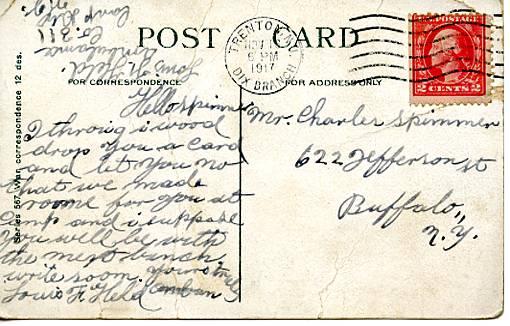 POST CARD
FOR CORRESPONDENCE
FOR ADDRESS ONLY
Series 567 War correspondence 12 des.
TRENTON, N.J.
NOV
6 PM
1917
DIX BRANCH
U.S. POSTAGE
2 CENTS 2
Hello spimmer
I throug i wood
drop you a card
and let you no
that we made
roome for you at
Camp and i suppose
you will be with
the next bunch
write soon. yours truly
Louis F Held
Louis F Held
Ambulance
Co. 311
Camp Dix
N.J.
Mr. Charles Spimmer
622 Jefferson st
Buffalo,
N.Y.